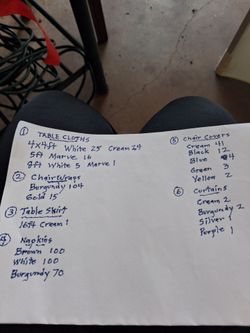 ① TABLE CLOTHS
4x4ft White 25 Cream 29
5ft Marve 16
8ft White 5 Marve 1
② Chair Wraps
Burgundy 104
Gold 15
③ Table Skirt
16ft Cream 1
④ Napkins
Brown 100
White 100
Burgundy 70
⑤ Chair Covers
Cream 41
Black 12
Blue 4
Green 3
Yellow 2
⑥ Curtains
Cream 2
Burgundy 2
Silver 1
Purple 1